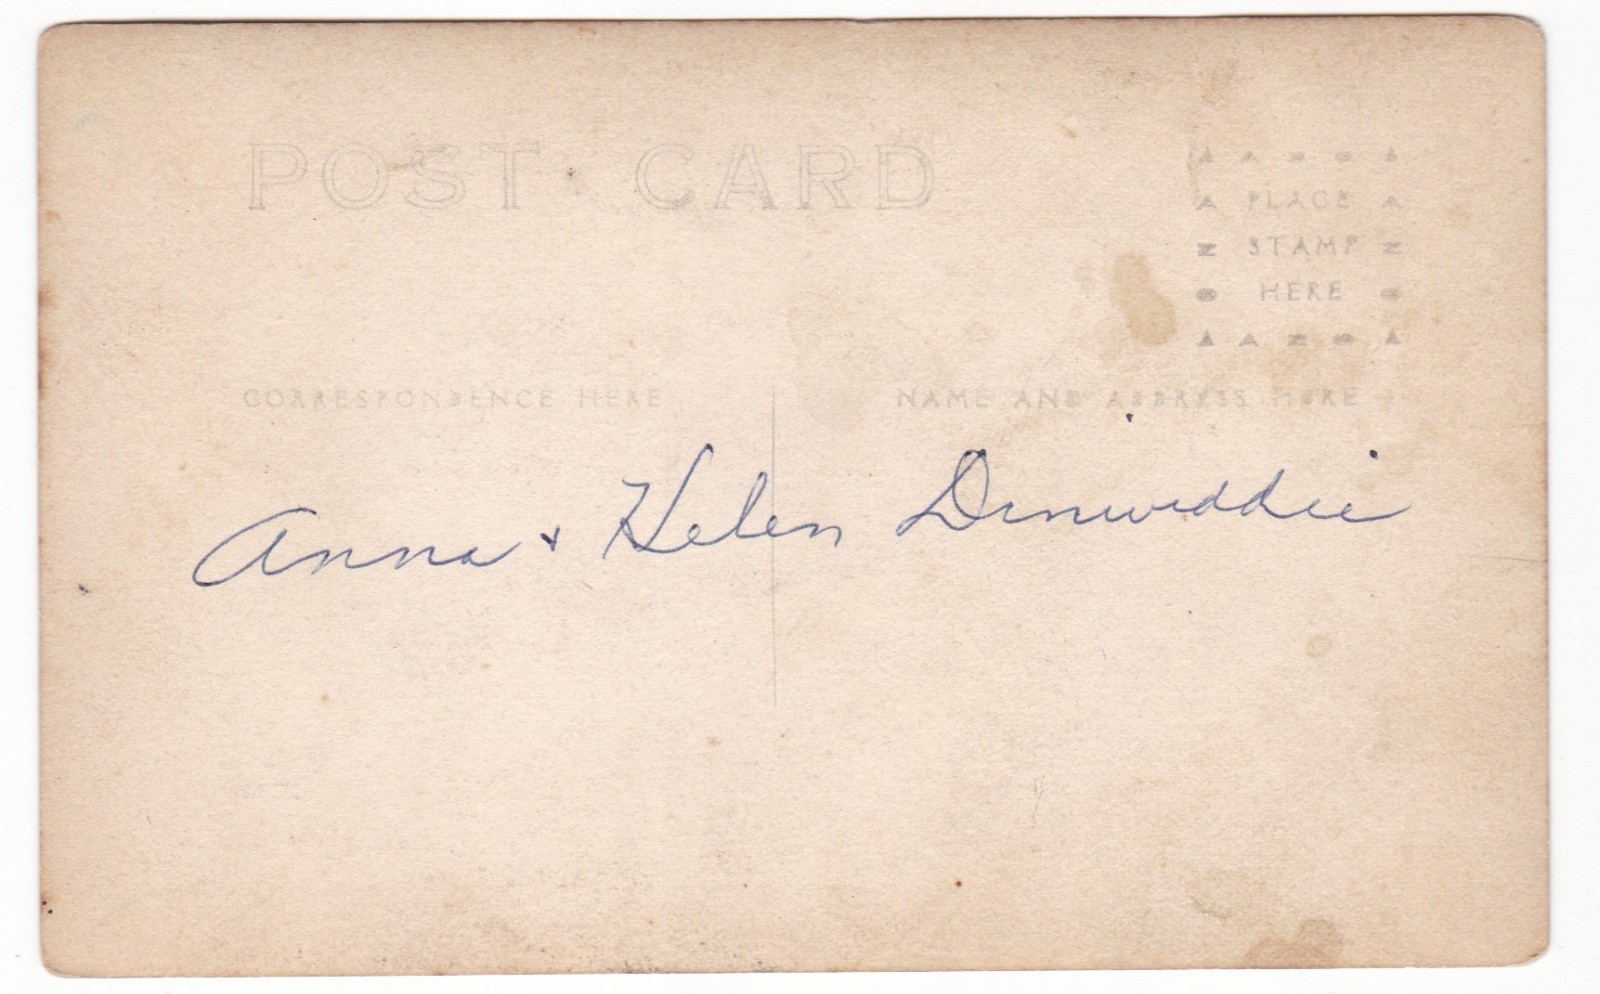 POST CARD
PLACE
STAMP
HERE
CORRESPONDENCE HERE
NAME AND ADDRESS HERE
Anna + Helen Dinwiddie